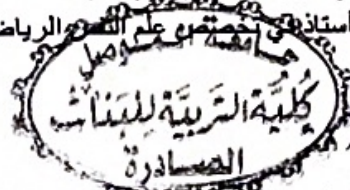 استاذ في تخصص علم النفس الرياض
جامعة الموصل
كلية التربية للبنات
الصادرة